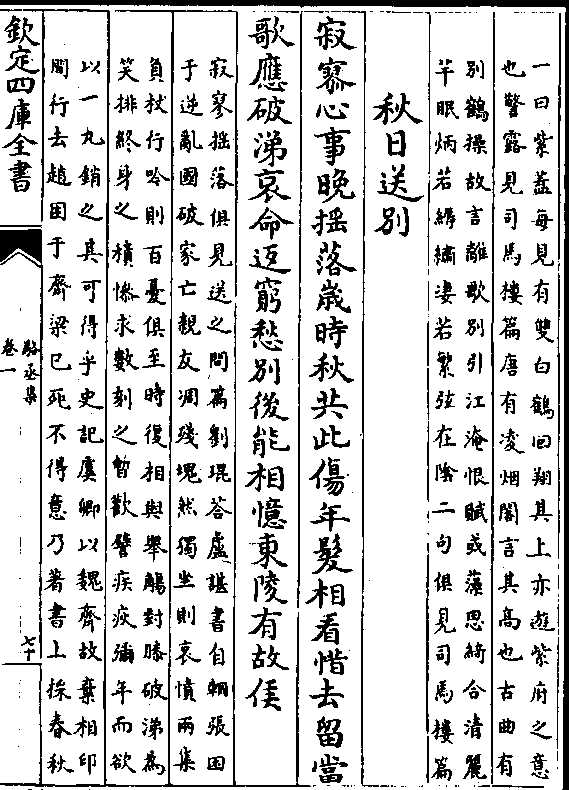 一曰紫葢每見有雙白鶴回翔其上亦遊紫府之意
也警露見司馬樓篇唐有凌烟閣言其高也古曲有
别鶴操故言離歌别引江淹恨賦或藻思綺合清麗
芊眠炳若縟繡悽若繁弦在隂二句俱見司馬樓篇
秋日送别
寂寥心事晚摇落歳時秋共此傷年髮相看惜去留當
歌應破涕哀命返窮愁别後能相憶東陵有故侯
寂寥摇落俱見送之問篇劉琨答盧諶書自輈張困
于逆亂國破家亡親友凋殘塊然獨坐則哀憤兩集
負杖行吟則百憂俱至時復相與舉觴對膝破涕為
笑排終身之積慘求數刻之暫歡譬疾疢彌年而欲
以一丸銷之其可得乎史記虞卿以魏齊故棄相印
間行去趙困于齊梁已死不得意乃著書上採春秋
欽定四庫全書
駱丞集
卷一
七十